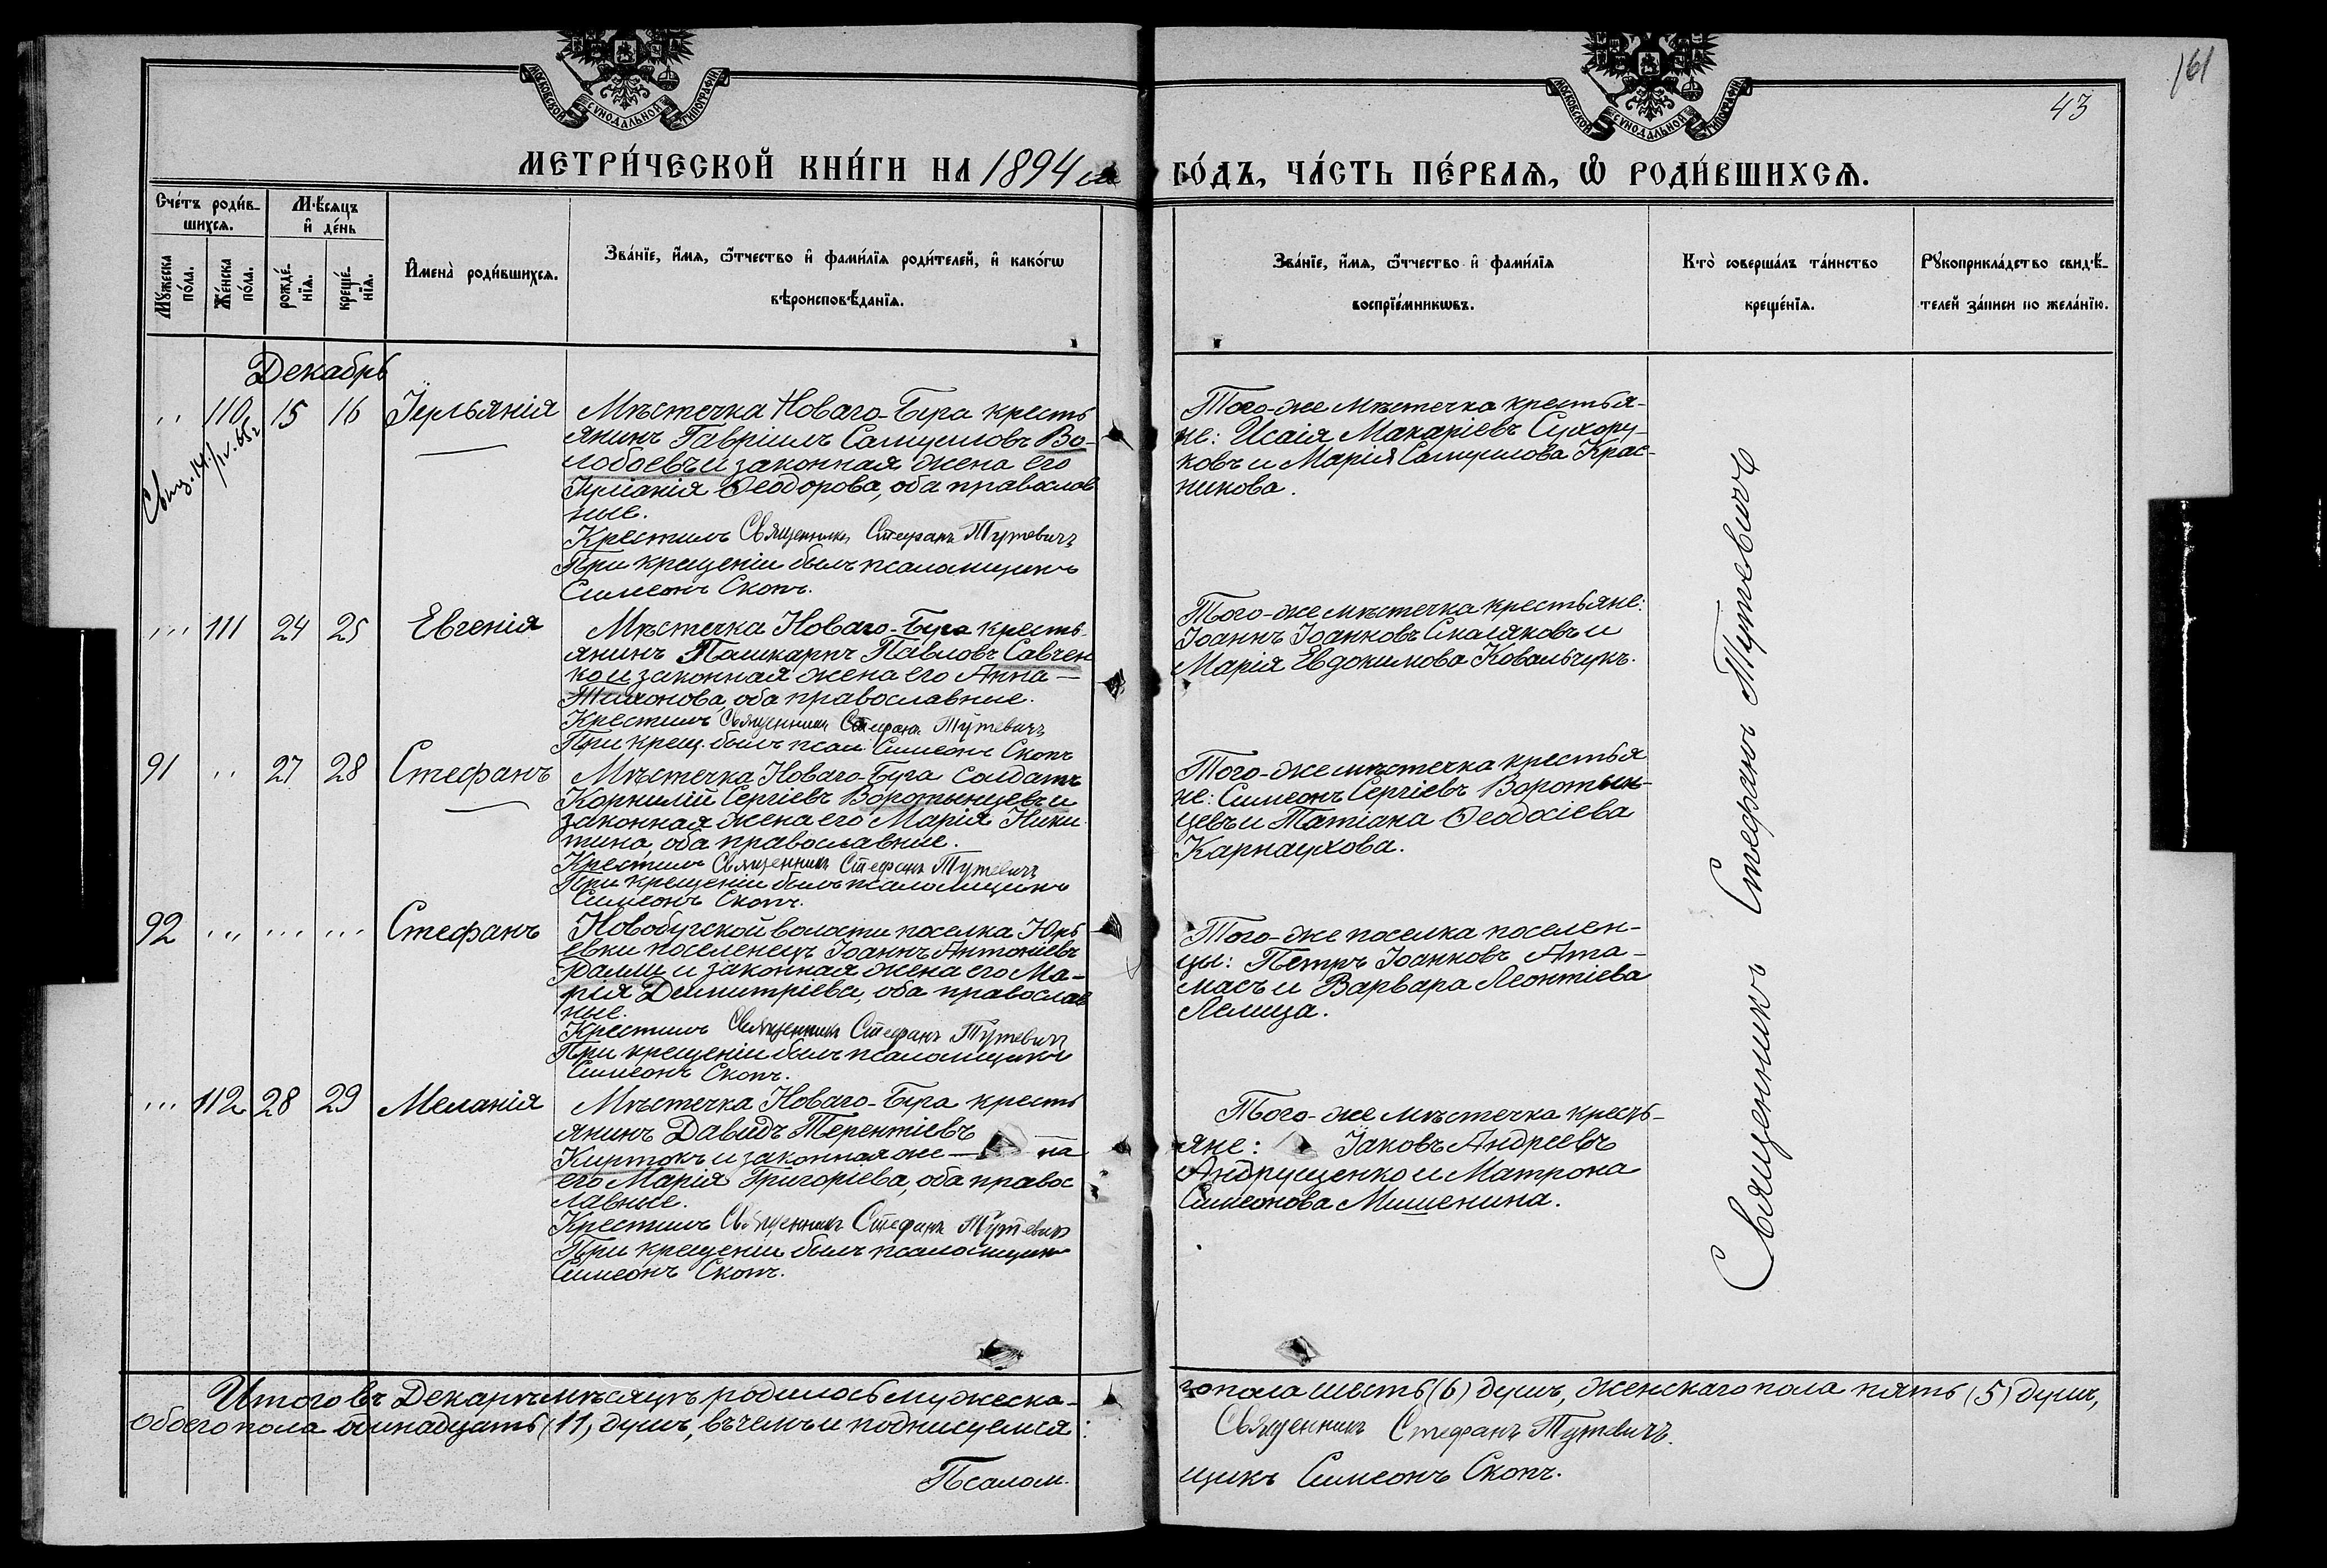 161
43
МОСКОВСКОЙ СУНОДАЛЬНОЙ ТИПОГРАФІИ
МОСКОВСКОЙ СУНОДАЛЬНОЙ ТИПОГРАФІИ
МЕТРИ́ЧЕСКОЙ КНИ́ГИ НА 1894 ГО́ДЪ, ЧА́СТЬ ПЕ́РВАѦ, Ѿ РОДИ́ВШИХСѦ.
Сче́тъ роди́в-
шихсѧ.
Мѣ́сѧцъ
и҆ де́нь
Мꙋ́жеска по́ла.
Же́нска по́ла.
рожде́-
нїѧ.
креще́-
нїѧ.
И҆мена̀ роди́вшихсѧ.
Зва́нїе, и҆́мѧ, ѻ҆́тчество и҆ фами́лїѧ роди́телей, и҆ како́гѡ
вѣроисповѣ́данїѧ.
Зва́нїе, и҆́мѧ, ѻ҆́тчество и҆ фами́лїѧ
воспрїе́мникѡвъ.
Кто̀ соверша́лъ та́инство
креще́нїѧ.
Рꙋкоприкла́дство свидѣ́-
телей за́писи по жела́нїю.
Декабрь
,, 110 15 16 Іуліанія
Мѣстечка Новаго-Буга кресть
янинъ Гавріилъ Самуиловъ Во-
лобоевъ и законная жена его
Іуліанія Ѳеодорова, оба православ
ные.
Крестилъ Священникъ Стефанъ Тутевичъ
При крещеніи былъ псаломщикъ
Симеонъ Скопъ.
Того-же мѣстечка крестья-
не: Исаія Макаріевъ Сухору-
ковъ и Марія Самуилова Крас-
никова.
,,, 111 24 25 Евгенія
Мѣстечка Новаго-Буга кресть-
янинъ Павловъ Савчен
ко и законная жена его Анна —
Тихонова, оба православные.
Крестилъ Священникъ Стефанъ Тутевичъ
При крещ. былъ псал. Симеонъ Скопъ
Того-же мѣстечка крестьяне:
Іоаннъ Іоанновъ Смоляковъ и
Марія Евдокимова Ковальчукъ.
91 ,, 27 28 Стефанъ
Мѣстечка Новаго-Буга солдатъ
Корнилій Сергіевъ Воротынцевъ и
законная жена его Марія Ники-
тина, оба православные.
Крестилъ Священникъ Стефанъ Тутевичъ
При крещеніи былъ псаломщикъ
Симеонъ Скопъ.
Того-же мѣстечка крестья
не: Симеонъ Сергіевъ Воротын-
цевъ и Татіана Ѳеодосіева
Карнаухова.
92 ,,, ,,, ,,, Стефанъ
Новобугской волости поселка Юрь
евки поселенецъ Іоаннъ Антоніевъ
и законная жена его Ма-
рія Димитріева, оба православ
ные.
Крестилъ Священникъ Стефанъ Тутевичъ
При крещеніи былъ псаломщикъ
Симеонъ Скопъ.
Того-же поселка поселен-
цы: Петръ Іоанновъ Ата-
масъ и Варвара Леонтіева
Лелица.
,,, 112 28 29 Меланія
Мѣстечка Новаго-Буга кресть
янинъ Давидъ Терентіевъ
Киртокъ и законная же — на
его Марія Григоріева, оба правос
лавные.
Крестилъ Священникъ Стефанъ Тутевичъ
При крещеніи былъ псаломщикъ
Симеонъ Скопъ.
Того-же мѣстечка кресть-
яне: Іаковъ Андреевъ
Андрущенко и Матрона
Симеонова Мишенина.
Священникъ Стефанъ Тутевичъ
Итого въ Декарѣ мѣсяцѣ родилось мужеска-
го пола шесть (6) душъ, женскаго пола пять (5) душъ,
обоего пола одинадцать (11) душъ, въ чемъ и подписуемся:
Священникъ Стефанъ Тутевичъ.
Псалом-
щикъ Симеонъ Скопъ.